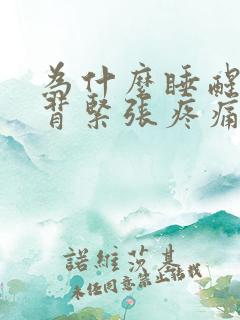 為什麼睡醒
背緊張疼痛
諾維莎基
未經同意禁止轉載